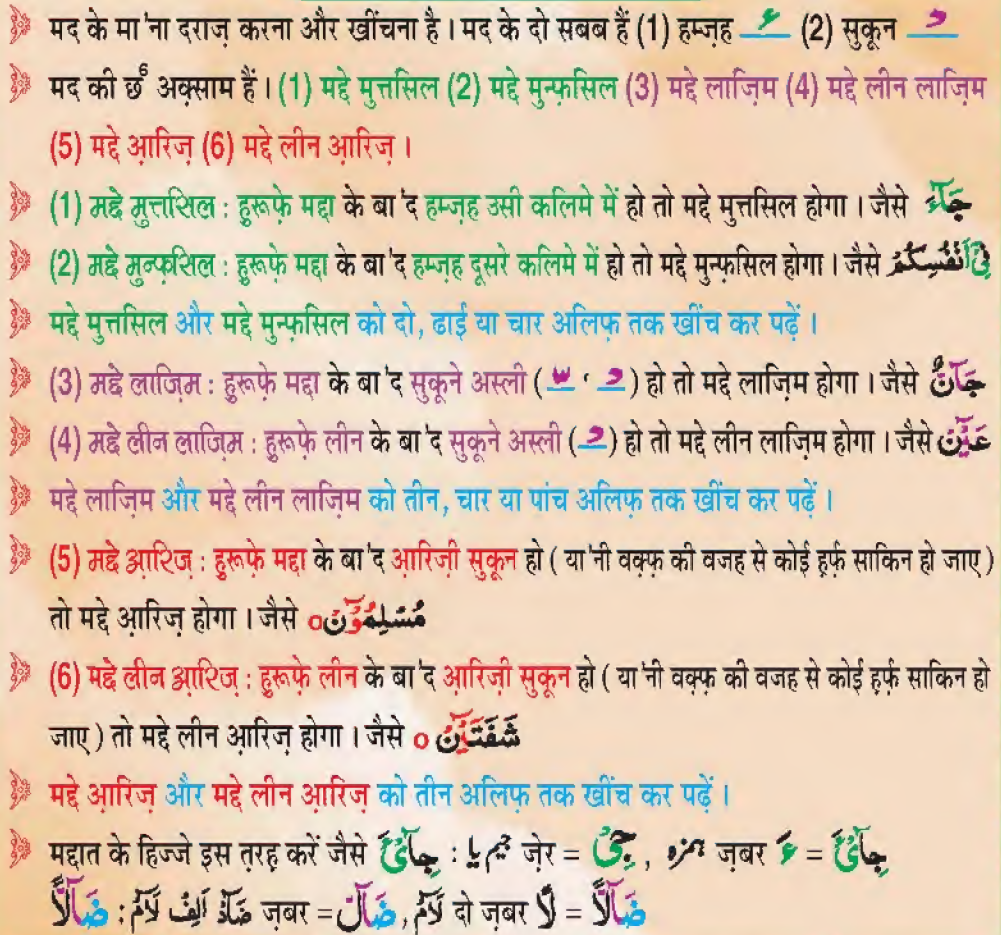 मद के मा'ना दराज़ करना और खींचना है। मद के दो सबब हैं (1) हम्ज़ह ء (2) सुकून
मद की छ अक़्साम हैं। (1) मद्दे मुत्तसिल (2) मद्दे मुन्फ़सिल (3) मद्दे लाज़िम (4) मद्दे लीन लाज़िम
(5) मद्दे आ़रिज़ (6) मद्दे लीन आ़रिज़।
(1) मद्दे मुत्तसिल : हुरूफ़े मद्दा के बा'द हम्ज़ह उसी कलिमे में हो तो मद्दे मुत्तसिल होगा। जैसे جَآءَ
(2) मद्दे मुन्फ़सिल : हुरूफ़े मद्दा के बा'द हम्ज़ह दूसरे कलिमे में हो तो मद्दे मुन्फ़सिल होगा। जैसे فِیْۤ اَنْفُسِكُمْ
मद्दे मुत्तसिल और मद्दे मुन्फ़सिल को दो, ढाई या चार अलिफ़ तक खींच कर पढ़ें।
(3) मद्दे लाज़िम : हुरूफ़े मद्दा के बा'द सुकूने अस्ली ( ْ ، ّ ) हो तो मद्दे लाज़िम होगा। जैसे جَآنٌّ
(4) मद्दे लीन लाज़िम : हुरूफ़े लीन के बा'द सुकूने अस्ली ( ْ ) हो तो मद्दे लीन लाज़िम होगा। जैसे عَیْۤنْ
मद्दे लाज़िम और मद्दे लीन लाज़िम को तीन, चार या पांच अलिफ़ तक खींच कर पढ़ें।
(5) मद्दे आ़रिज़ : हुरूफ़े मद्दा के बा'द आ़रिज़ी सुकून हो ( या'नी वक़्फ़ की वजह से कोई ह़र्फ़ साकिन हो जाए )
तो मद्दे आ़रिज़ होगा। जैसे مُسْلِمُوْۤنَ o
(6) मद्दे लीन आ़रिज़ : हुरूफ़े लीन के बा'द आ़रिज़ी सुकून हो ( या'नी वक़्फ़ की वजह से कोई ह़र्फ़ साकिन हो
जाए ) तो मद्दे लीन आ़रिज़ होगा। जैसे شَفَتَیْۤنِ o
मद्दे आ़रिज़ और मद्दे लीन आ़रिज़ को तीन अलिफ़ तक खींच कर पढ़ें।
मद्दात के हिज्जे इस त़रह़ करें जैसे جِآیْٓءَ : جیم یا ज़ेर = جِیْ , ہمزہ ज़बर ءَ = جِآیْٓءَ
ضَآلًّا : ضَادْ اَلِفْ لَامْ ज़बर = ضَآلْ , لَامْ दो ज़बर لًا = ضَآلًّا